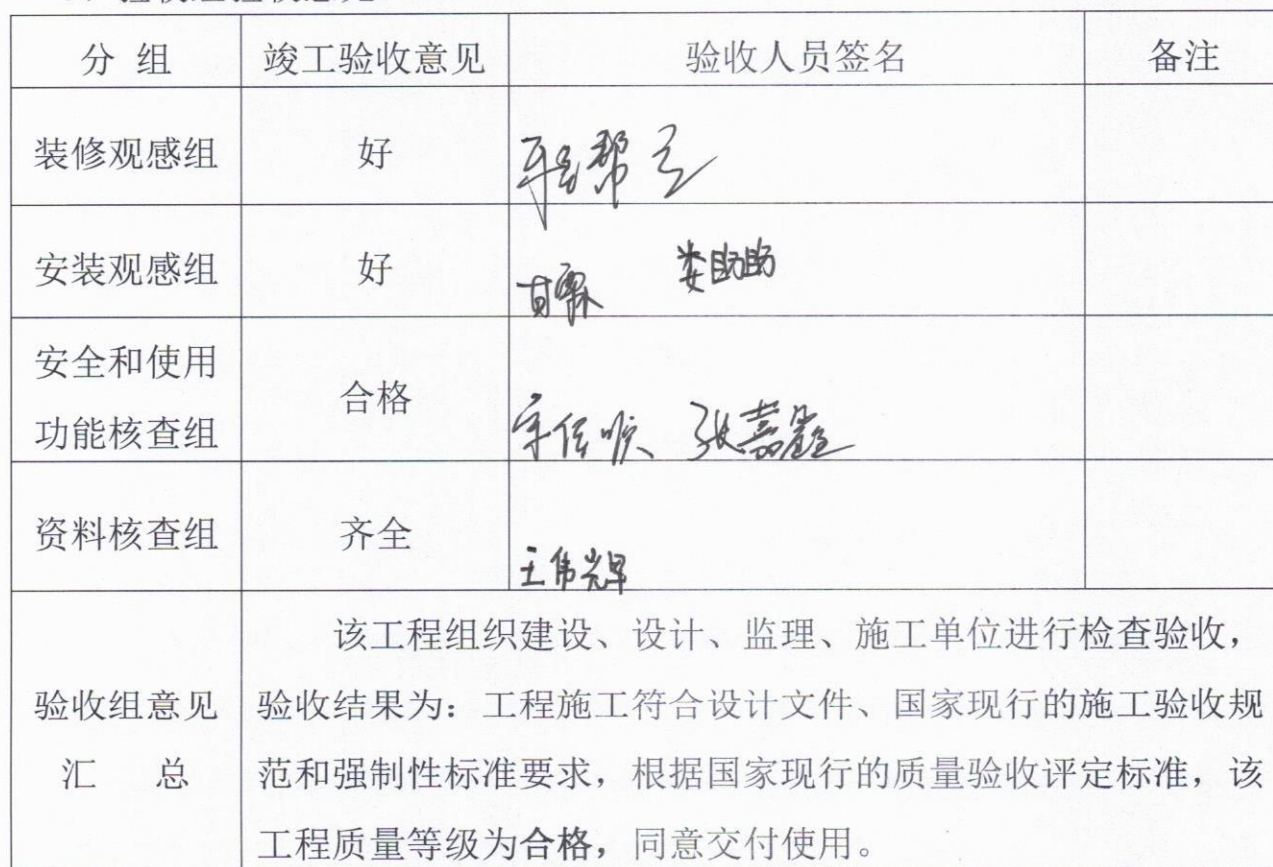 分 组 竣工验收意见 验收人员签名 备注
装修观感组 好
安装观感组 好 甘霖 娄助助
安全和使用
功能核查组 合格 张嘉鑫
资料核查组 齐全 王伟光早
该工程组织建设、设计、监理、施工单位进行检查验收，
验收组意见 验收结果为：工程施工符合设计文件、国家现行的施工验收规
汇 总 范和强制性标准要求，根据国家现行的质量验收评定标准，该
工程质量等级为合格，同意交付使用。